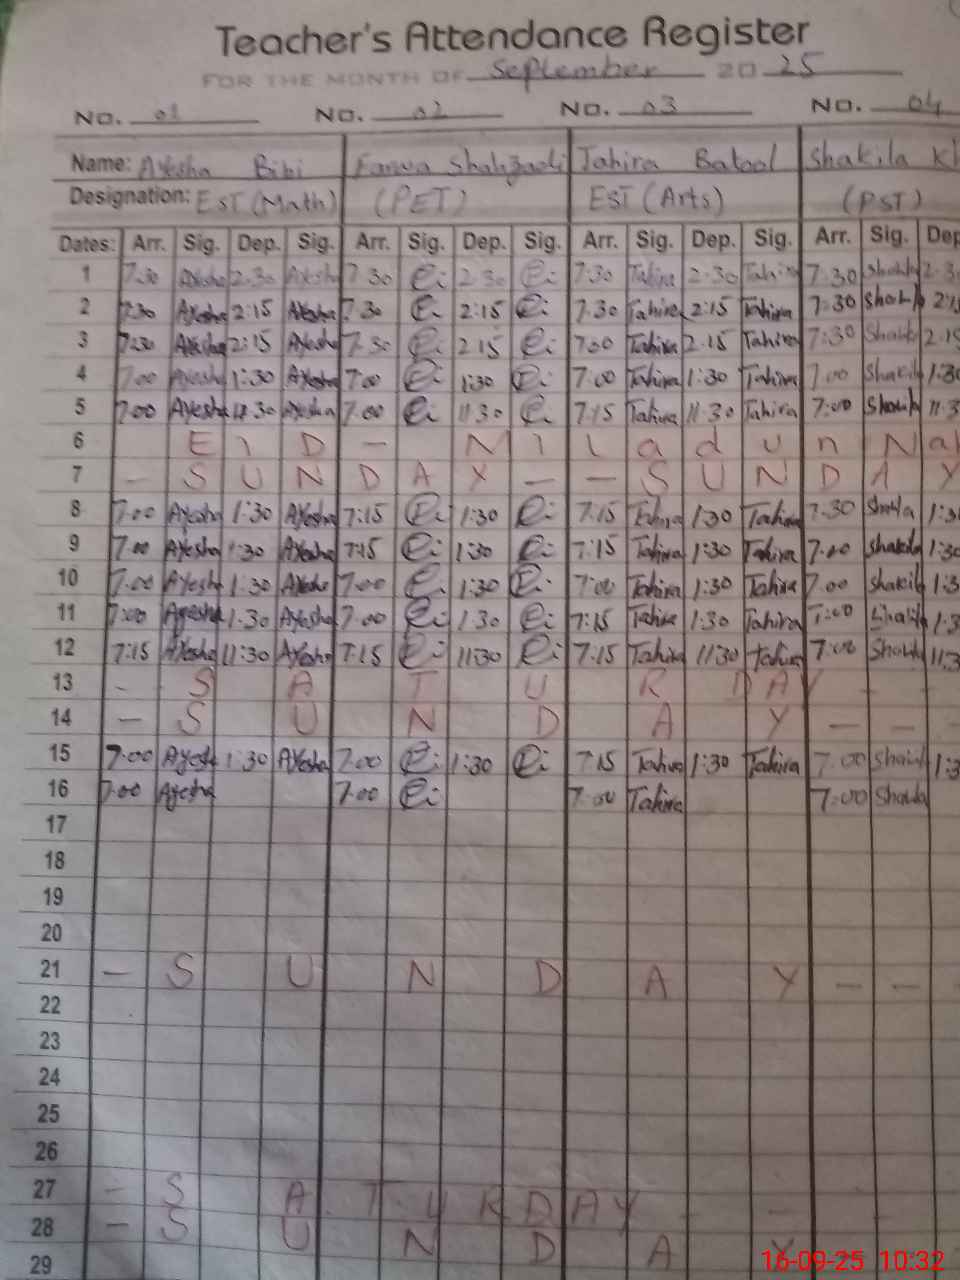 Teacher's Attendance Register
FOR THE MONTH OF September 20 25
No. 01 No. 02 No. 03 No. 04
Name: Ayesha Bibi Farwa Shahzadi Tahira Batool Shakila
Designation: EST (Math) (PET) EST (Arts) (PST)
Dates: Arr. Sig. Dep. Sig. Arr. Sig. Dep. Sig. Arr. Sig. Dep. Sig. Arr. Sig. Dep
1 7:30 Ayesha 2:30 Ayesha 7:30 2:30 7:30 Tahira 2:30 Tahira 7:30
2 7:30 Ayesha 2:15 Ayesha 7:30 2:15 7:30 Tahira 2:15 Tahira 7:30
3 7:30 Ayesha 2:15 Ayesha 7:30 2 15 7:00 Tahira 2:15 Tahira 7:30
4 7:00 Ayesha 1:30 Ayesha 7:00 1:30 7:00 Tahira 1:30 Tahira 7:00
5 7:00 Ayesha 11:30 Ayesha 7:00 11:30 7:15 Tahira 11:30 Tahira 7:00
6 E I D - M I L a d u n Na
7 - S U N D A Y - - S U N D A Y
8 7:00 Ayesha 1:30 Ayesha 7:15 1:30 7:15 Tahira 1:30 Tahira 7:30
9 7:00 Ayesha 1:30 Ayesha 7:15 1:30 7:15 Tahira 1:30 Tahira 7:00
10 7:00 Ayesha 1:30 Ayesha 7:00 1:30 7:00 Tahira 1:30 Tahira 7:00
11 7:00 Ayesha 1:30 Ayesha 7:00 1:30 7:15 Tahira 1:30 Tahira 7:00
12 7:15 Ayesha 11:30 Ayesha 7:15 11:30 7:15 Tahira 11:30 Tahira 7:00
13 - S A T U R D A Y - -
14 - S U N D A Y - - -
15 7:00 Ayesha 1:30 Ayesha 7:00 1:30 7:15 Tahira 1:30 Tahira 7:00
16 7:00 Ayesha 7:00 7:00 Tahira 7:00
17
18
19
20
21 - S U N D A Y - - -
22
23
24
25
26
27 - S A T U R D A Y - -
28 - S U N D A Y
29
16-09-25 10:32